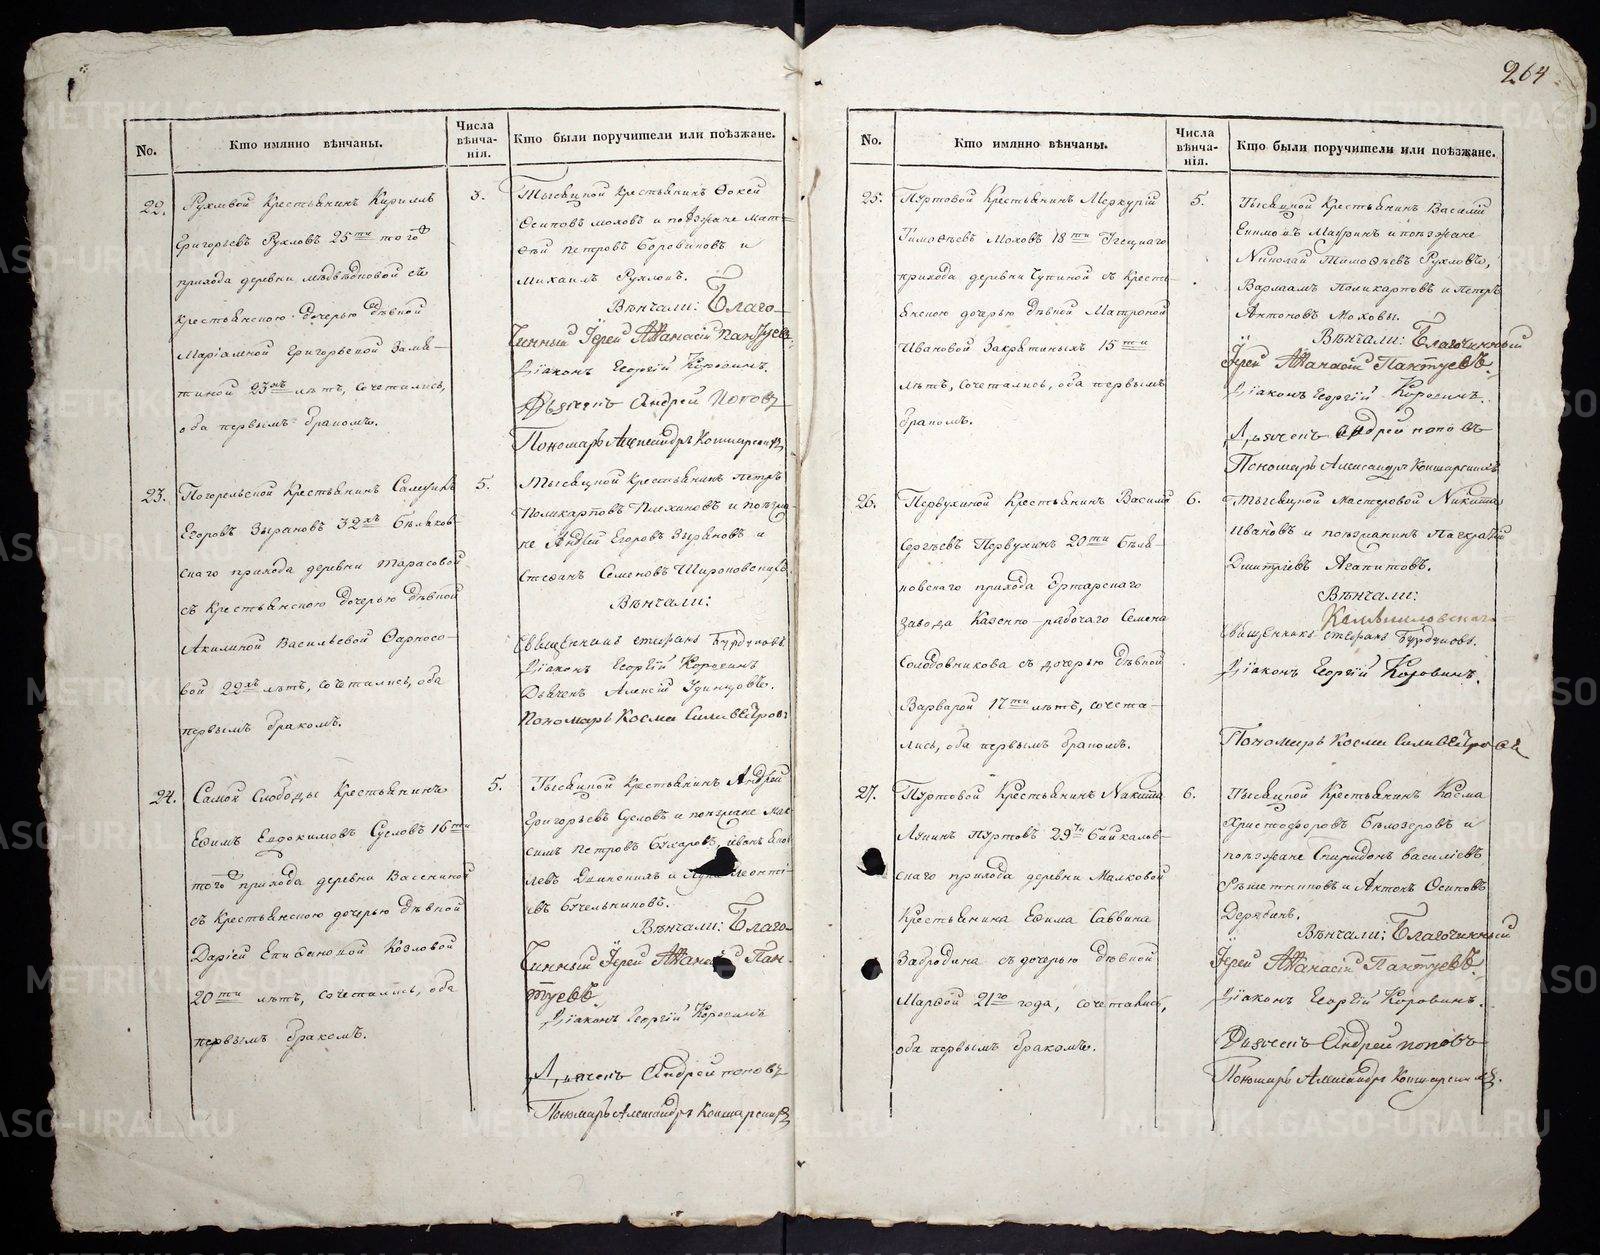 264
No.
Кто имянно вѣнчаны.
Числа вѣнча-нія.
Кто были поручители или поѣзжане.
22.
Рухловой Крестьянинъ Кириллъ
Григорьевъ Рухловъ 25ти того
прихода деревни съ
крестьянскою дочерью дѣвкой
Григорьевой
23хъ лѣтъ, сочетались,
оба первымъ бракомъ.
3.
Тысяцкой крестьянинъ Фокей
Осиповъ Моховъ и поѣзжане Мат-
ѳѣй Петровъ Боровиковъ и
Михаилъ Рухловъ.
Вѣнчали: Благо-
чинный Іерей Аѳанасій Пантуевъ
Діаконъ Георгій Коровинъ.
Дьячекъ Андрей Поповъ
Пономарь Александръ
23.
Погорельской Крестьянинъ
Егоровъ Зыряновъ 32хъ Бѣляков-
скаго прихода деревни Тарасовой
съ крестьянскою дочерью дѣвкой
Акилиной Васильевой
22хъ лѣтъ, сочетались, оба
первымъ бракомъ.
5.
Тысяцкой крестьянинъ Петръ
Поликарповъ и поѣзжа-
не Андрей Егоровъ Зыряновъ и
Стефанъ Семеновъ
Вѣнчали:
Священникъ Стефанъ Бурдуковъ
Діаконъ Георгій Коровинъ
Дьячекъ Алексій Удинцовъ.
Пономарь Косма Сильвестровъ
24.
Самой Слободы Крестьянинъ
Ефимъ Евдокимовъ Сусловъ 16ти
того прихода деревни
съ крестьянскою дочерью дѣвкой
Даріей Епифановой Козловой
20ти лѣтъ, сочетались, оба
первымъ бракомъ.
5.
Тысяцкой Крестьянинъ Андрей
Григорьевъ Сусловъ и поѣзжане Мак-
симъ Петровъ Иванъ
и Лука Леонті-
евъ
Вѣнчали: Благо-
чинный Іерей Аѳанасій Пан-
туевъ.
Діаконъ Георгій Коровинъ
Дьячекъ Андрей Поповъ
Пономарь Александръ
No.
Кто имянно вѣнчаны.
Числа вѣнча-нія.
Кто были поручители или поѣзжане.
25.
Пуртовой Крестьянинъ Меркурій
Тимоѳеевъ Моховъ 18ти
прихода деревни Чупиной съ кресть-
янскою дочерью дѣвкой Матроной
Ивановой 15ти
лѣтъ, сочетались, оба первымъ
бракомъ.
5.
Тысяцкой Крестьянинъ Василій
и поѣзжане
Николай Тимоѳеевъ Рухловъ,
Варлаамъ Поликарповъ и Петръ
Антоновъ Моховы.
Вѣнчали: Благочинный
Іерей Аѳанасій Пантуевъ.
Діаконъ Георгій Коровинъ.
Дьячекъ Андрей Поповъ
Пономарь Александръ
26.
Первухиной Крестьянинъ Василій
Сергѣевъ Первухинъ 20ти Бѣля-
ковскаго прихода Ертарскаго
завода казенно-рабочаго Семена
Солодовникова съ дочерью дѣвкой
Варварой 17ти лѣтъ, сочета-
лись, оба первымъ бракомъ.
6.
Тысяцкой мастеровой Никита
Ивановъ и поѣзжанинъ Панкратій
Дмитріевъ Агапитовъ.
Вѣнчали:
Священникъ Стефанъ Бурдуковъ.
Діаконъ Георгій Коровинъ.
Пономарь Косма Сильвестровъ
27.
Пуртовой Крестьянинъ Никита
Пуртовъ 29ти Байкалов-
скаго прихода деревни Малковой
Крестьянина Ефима Саввина
Забродина съ дочерью дѣвкой
Марѳой 21го года, сочетались,
оба первымъ бракомъ.
6.
Тысяцкой Крестьянинъ Косма
Христофоровъ Бѣлозеровъ и
поѣзжане Спиридонъ Василіевъ
Рѣшетниковъ и Антонъ Осиповъ
Дерябинъ.
Вѣнчали: Благочинный
Іерей Аѳанасій Пантуевъ.
Діаконъ Георгій Коровинъ.
Дьячекъ Андрей Поповъ
Пономарь Александръ
METRIKI.GASO-URAL.RU